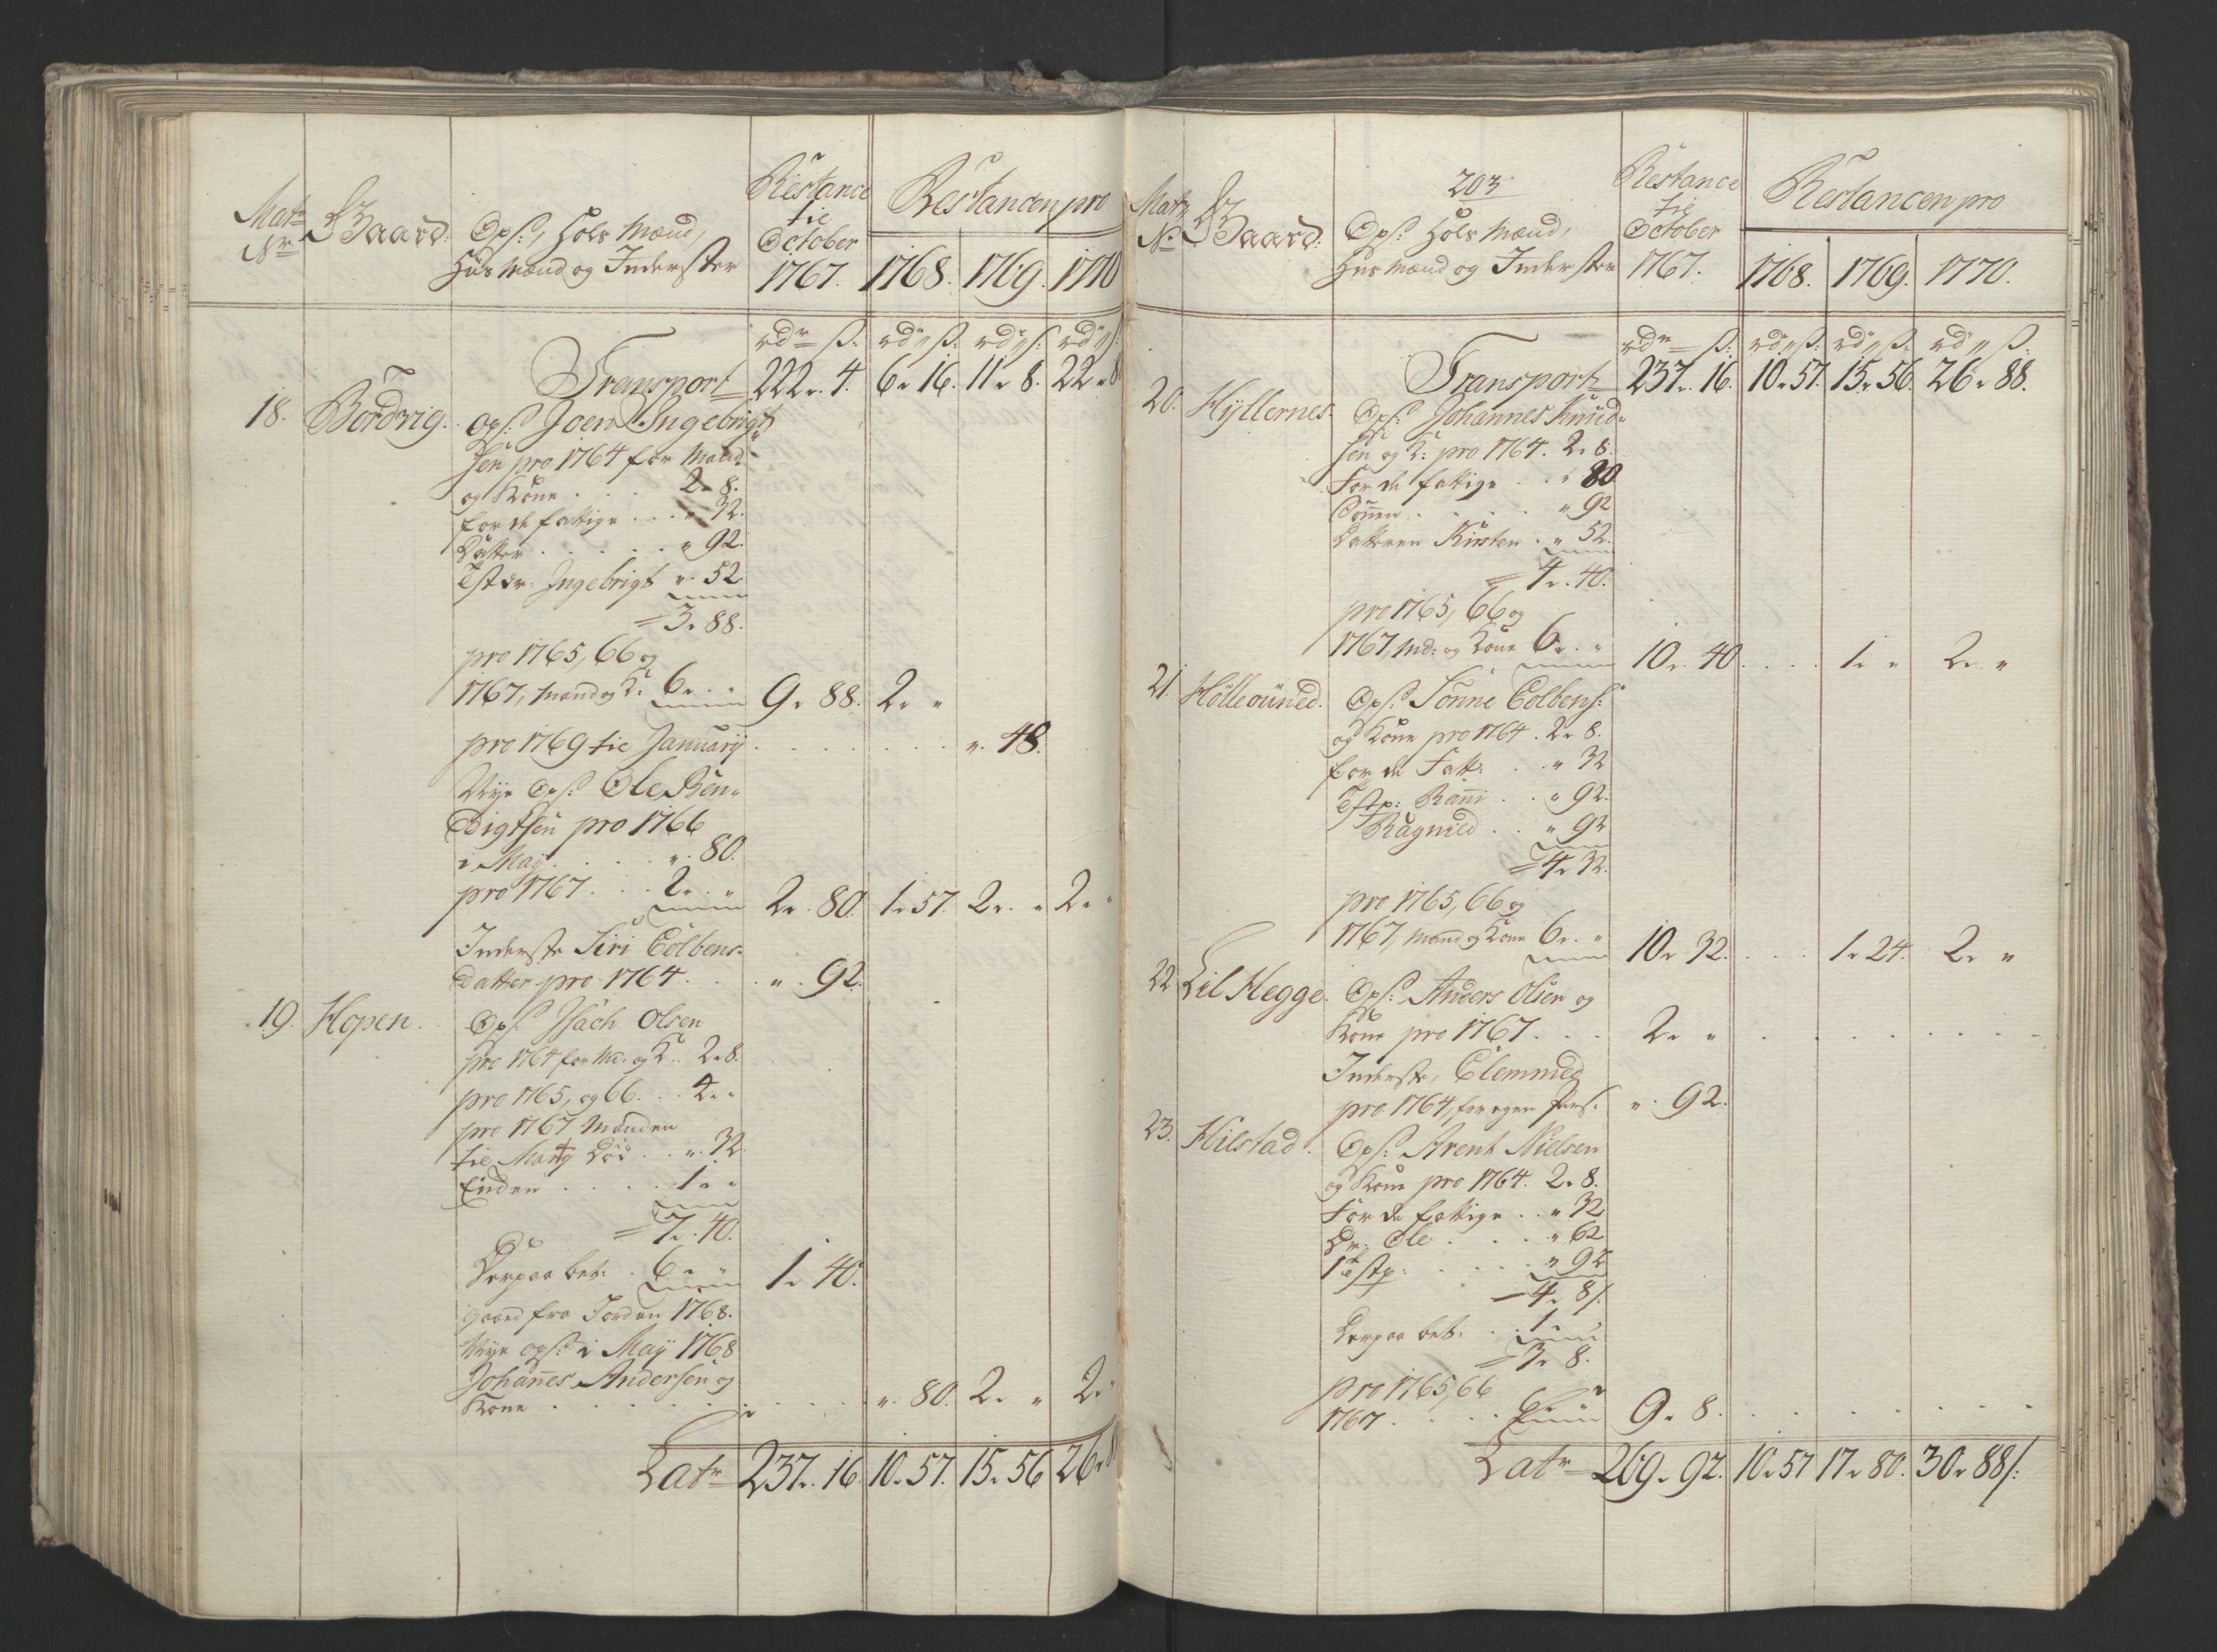 Matr Nr
Gaard.
Ops:, Hols Mænd,
Huus Mænd og Inderster
Restance
til
October
1767.
Restancen pro
1768. 1769. 1770
rdr ß: rdr ß: rdr ß: rdr ß:
Transport 222 „ 4. 6 „ 16. 11 „ 8. 22 „ 8
18. Bordvig. Ops: Joen Ingebrigt
sen pro 1764 for Mand
og Kone . . . 2 „ 8.
for de fattige . . . „ 32.
Datter . . . . . „ 92.
Ingebrigt „ 52.
= 3 „ 88.
pro 1765, 66 og
1767, Mand og K: 6 „ „ 9 „ 88. 2 „ „
pro 1769 til Januarÿ . . . . . . . . „ 48.
Nye Ops: Ole Ben„
digtsen pro 1766
i Maÿ . . . . „ 80.
pro 1767 . . . 2 „ „ 2 „ 80. 1 „ 57. 2 „ „ 2 „ „
Inderste Siri Colbens„
datter pro 1764 . . . . „ 92.
19. Hopen. Ops: Isach Olsen
pro 1764 for Md: og K: 2 „ 8.
pro 1765, og 66 . . 4 „ „
pro 1767 Manden
til Martÿ Død . . „ 32.
Enken . . . . . 1 „ „
= 7 „ 40.
Derpaa bet: . 6 „ „ 1 „ 40.
gaaed fra Jorden 1768.
Nye ops: i Maÿ 1768
Johannes Andersen og
Kone . . . . . . . . . . „ 80. 2 „ „ 2 „
Latr 237 „ 16. 10 „ 57. 15 „ 56 26 „ 8
203
Matr Nr
Gaard:
Ops: Hols Mænd,
Huus Mænd og Inderster
Restance
til
October
1767.
Restancen pro
1768. 1769. 1770.
rdr ß: rdr ß: rdr ß: rdr ß:
Transport 237 „ 16. 10 „ 57. 15 „ 56. 26 „ 88.
20. Hÿllernes. Ops: Johannes Knud„
sen og K: pro 1764. 2 „ 8.
For de fattige . . „ 80
Sønen . . . . . „ 92
Datteren Kirsten . „ 52.
= 4 „ 40.
pro 1765, 66 og
1767, Md: og Kone 6 „ „ 10 „ 40. . . . 1 „ „ 2 „ „
21. Hølleouned. Ops: Tønne Colbens:
og Kone pro 1764 . 2 „ 8.
for de Fatt: . . „ 32
Rani . . „ 92.
Ragnild . . „ 92
= 4 „ 32.
pro 1765, 66 og
1767, Mand og Kone 6 „ „ 10 „ 32. . . . 1 „ 24. 2 „ „
22 Lil Hegge. Ops: Anders Olsen og
Kone pro 1767 . . . 2 „ „ . . . . . . .
Inderste, Clemmed
pro 1764, for egen Pers: „ 92.
23. Hilstad. Ops: Arent Nielsen
og Kone pro 1764. 2 „ 8.
For de fattige . . „ 32
Dr. Ole . . . . „ 62
1 . . . . „ 92
= 4 „ 8/:
Derpaa bet: . . 1 „
= 3 „ 8.
pro 1765, 66
1767 . . . . 6 „ „ 9 „ 8. . . . . . . .
Latr 269 „ 92. 10 „ 57 17 „ 80. 30 „ 88/: